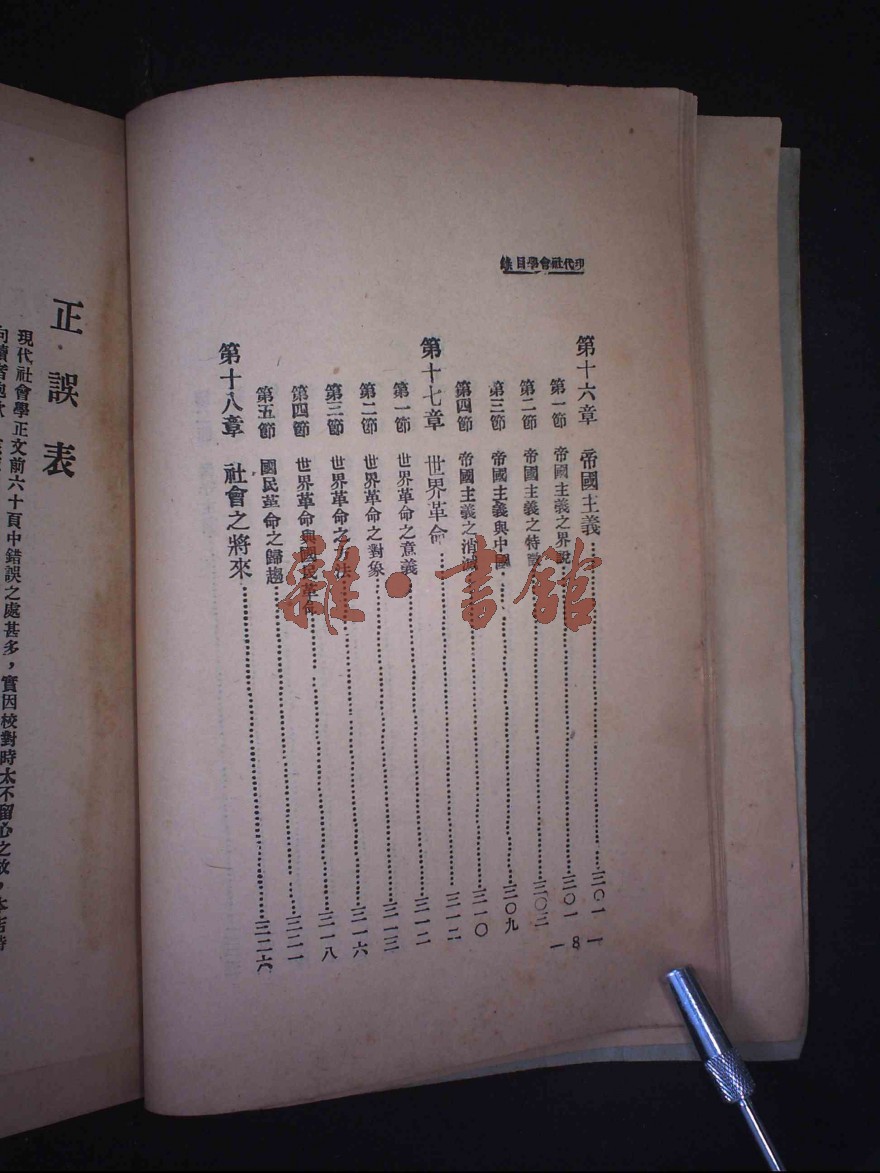 現代社會學目錄
第十六章 帝國主義……三〇一
第一節 帝國主義之界說……三〇一
第二節 帝國主義之特徵……三〇二
第三節 帝國主義與中國……三〇九
第四節 帝國主義之消滅……三一〇
第十七章 世界革命……三一二
第一節 世界革命之意義……三一二
第二節 世界革命之對象……三一三
第三節 世界革命之方法……三一六
第四節 世界革命與國民革命……三一八
第五節 國民革命之歸趨……三二一
第十八章 社會之將來……三二六
一 8 一
正誤表
現代社會學正文前六十頁中錯誤之處甚多，實因校對時太不留心之故，本店特
向讀者
雜·書館